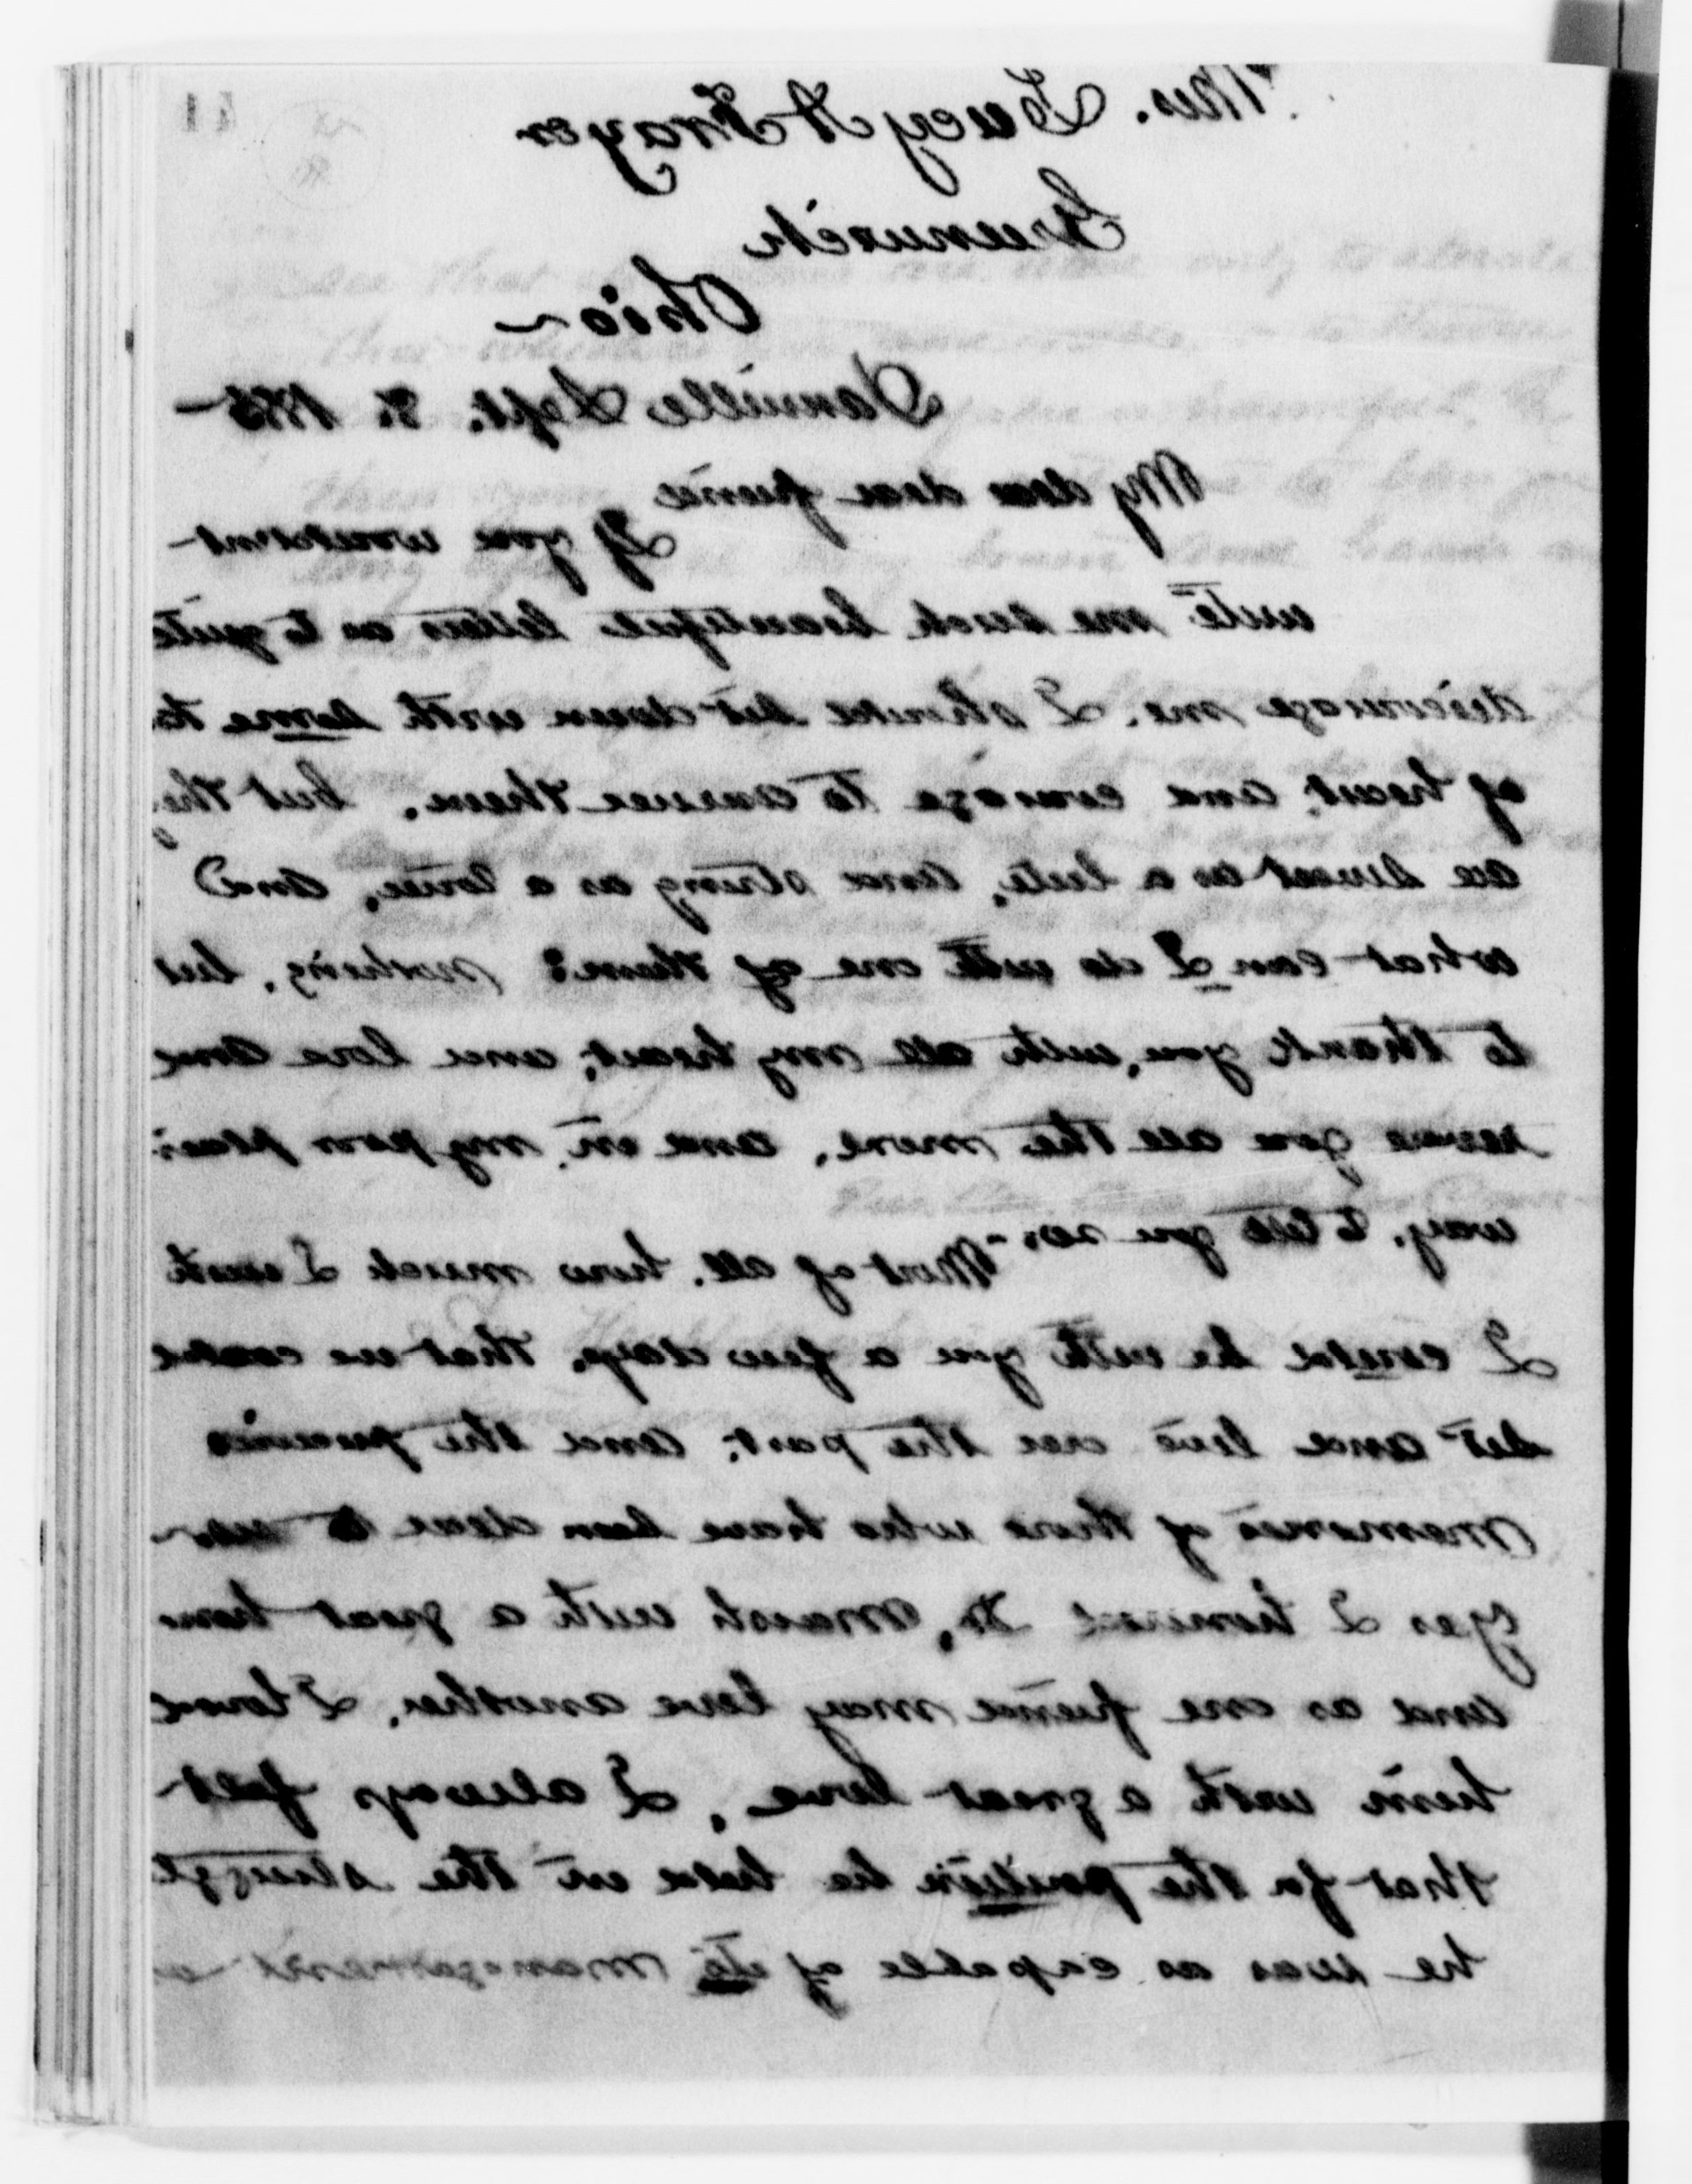 41
Mrs. Lucy A Thayer
Greenwich
Ohio ~
Danville Sept. 8. 1885 -
My dear dear friend
If you would not
write me such beautiful letters as to quite
discourage me. I should sit down with some
of heart, and courage to answer them. but they
are sweet as a lute, and strong as a and
what can I do with one of them? nothing, but
to thank you, with all my heart; and love and
you all the more, and in my poor plain
way, to tell you so, - Most of all, how much I wish
I could be with you a few days, that we could
sit and live over the past; and the precious
memories of those who have been dear to us -
Yes I Dr, Marsh with a great
and as one friend may love another, I loved
him with a great love, I always felt
that for the position he held in the
he was as capable of its management